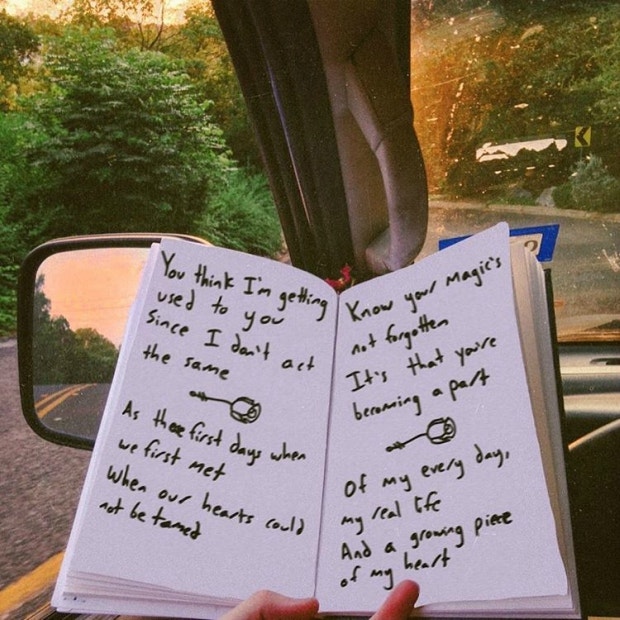 You think I'm getting
used to you
Since I don't act
the same
As those first days when
we first met
When our hearts could
not be tamed
Know your magic's
not forgotten
It's that you're
becoming a part
Of my every day,
my real life
And a growing piece
of my heart